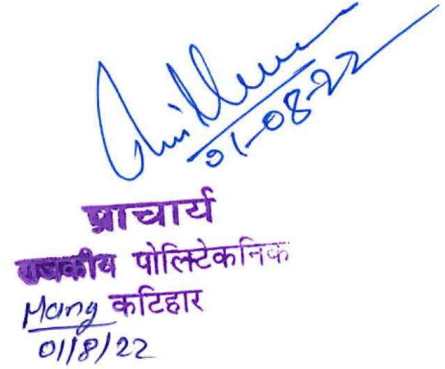 01-08-22
प्राचार्य
राजकीय पोलिटेकनिक
कटिहार
01/8/22